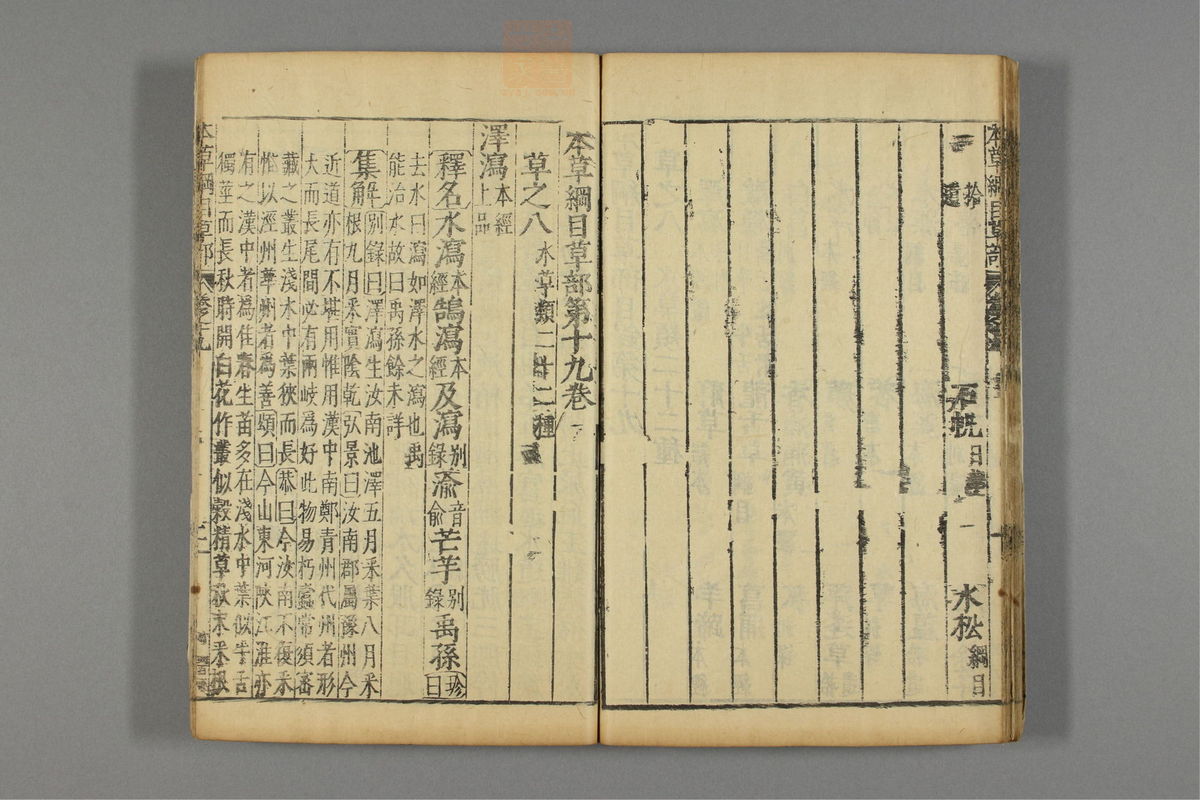 本草綱目草部
拾遺
石帆日華
水松綱目
本草綱目草部第十九卷
草之八 水草類二十二種
澤瀉 本經上品
釋名水瀉本經鵠瀉本經及瀉別錄蕍音俞芒芋別錄禹孫 時珍曰
去水曰瀉如澤水之瀉也禹
能治水故曰禹孫餘未詳
集解 別錄曰澤瀉生汝南池澤五月采葉八月采
根九月采實陰乾弘景曰汝南郡屬豫州今
近道亦有不堪用惟用漢中南鄭青州代州者形
大而長尾間必有兩岐爲好此物易朽蠹常須密
藏之叢生淺水中葉狹而長恭曰今汝南不復采
惟以涇州華州者爲善頌曰今山東河陝江淮亦
有之漢中者爲佳春生苗多在淺水中葉似牛舌
獨莖而長秋時開白花作叢似穀精草秋末采根
本草綱目草部